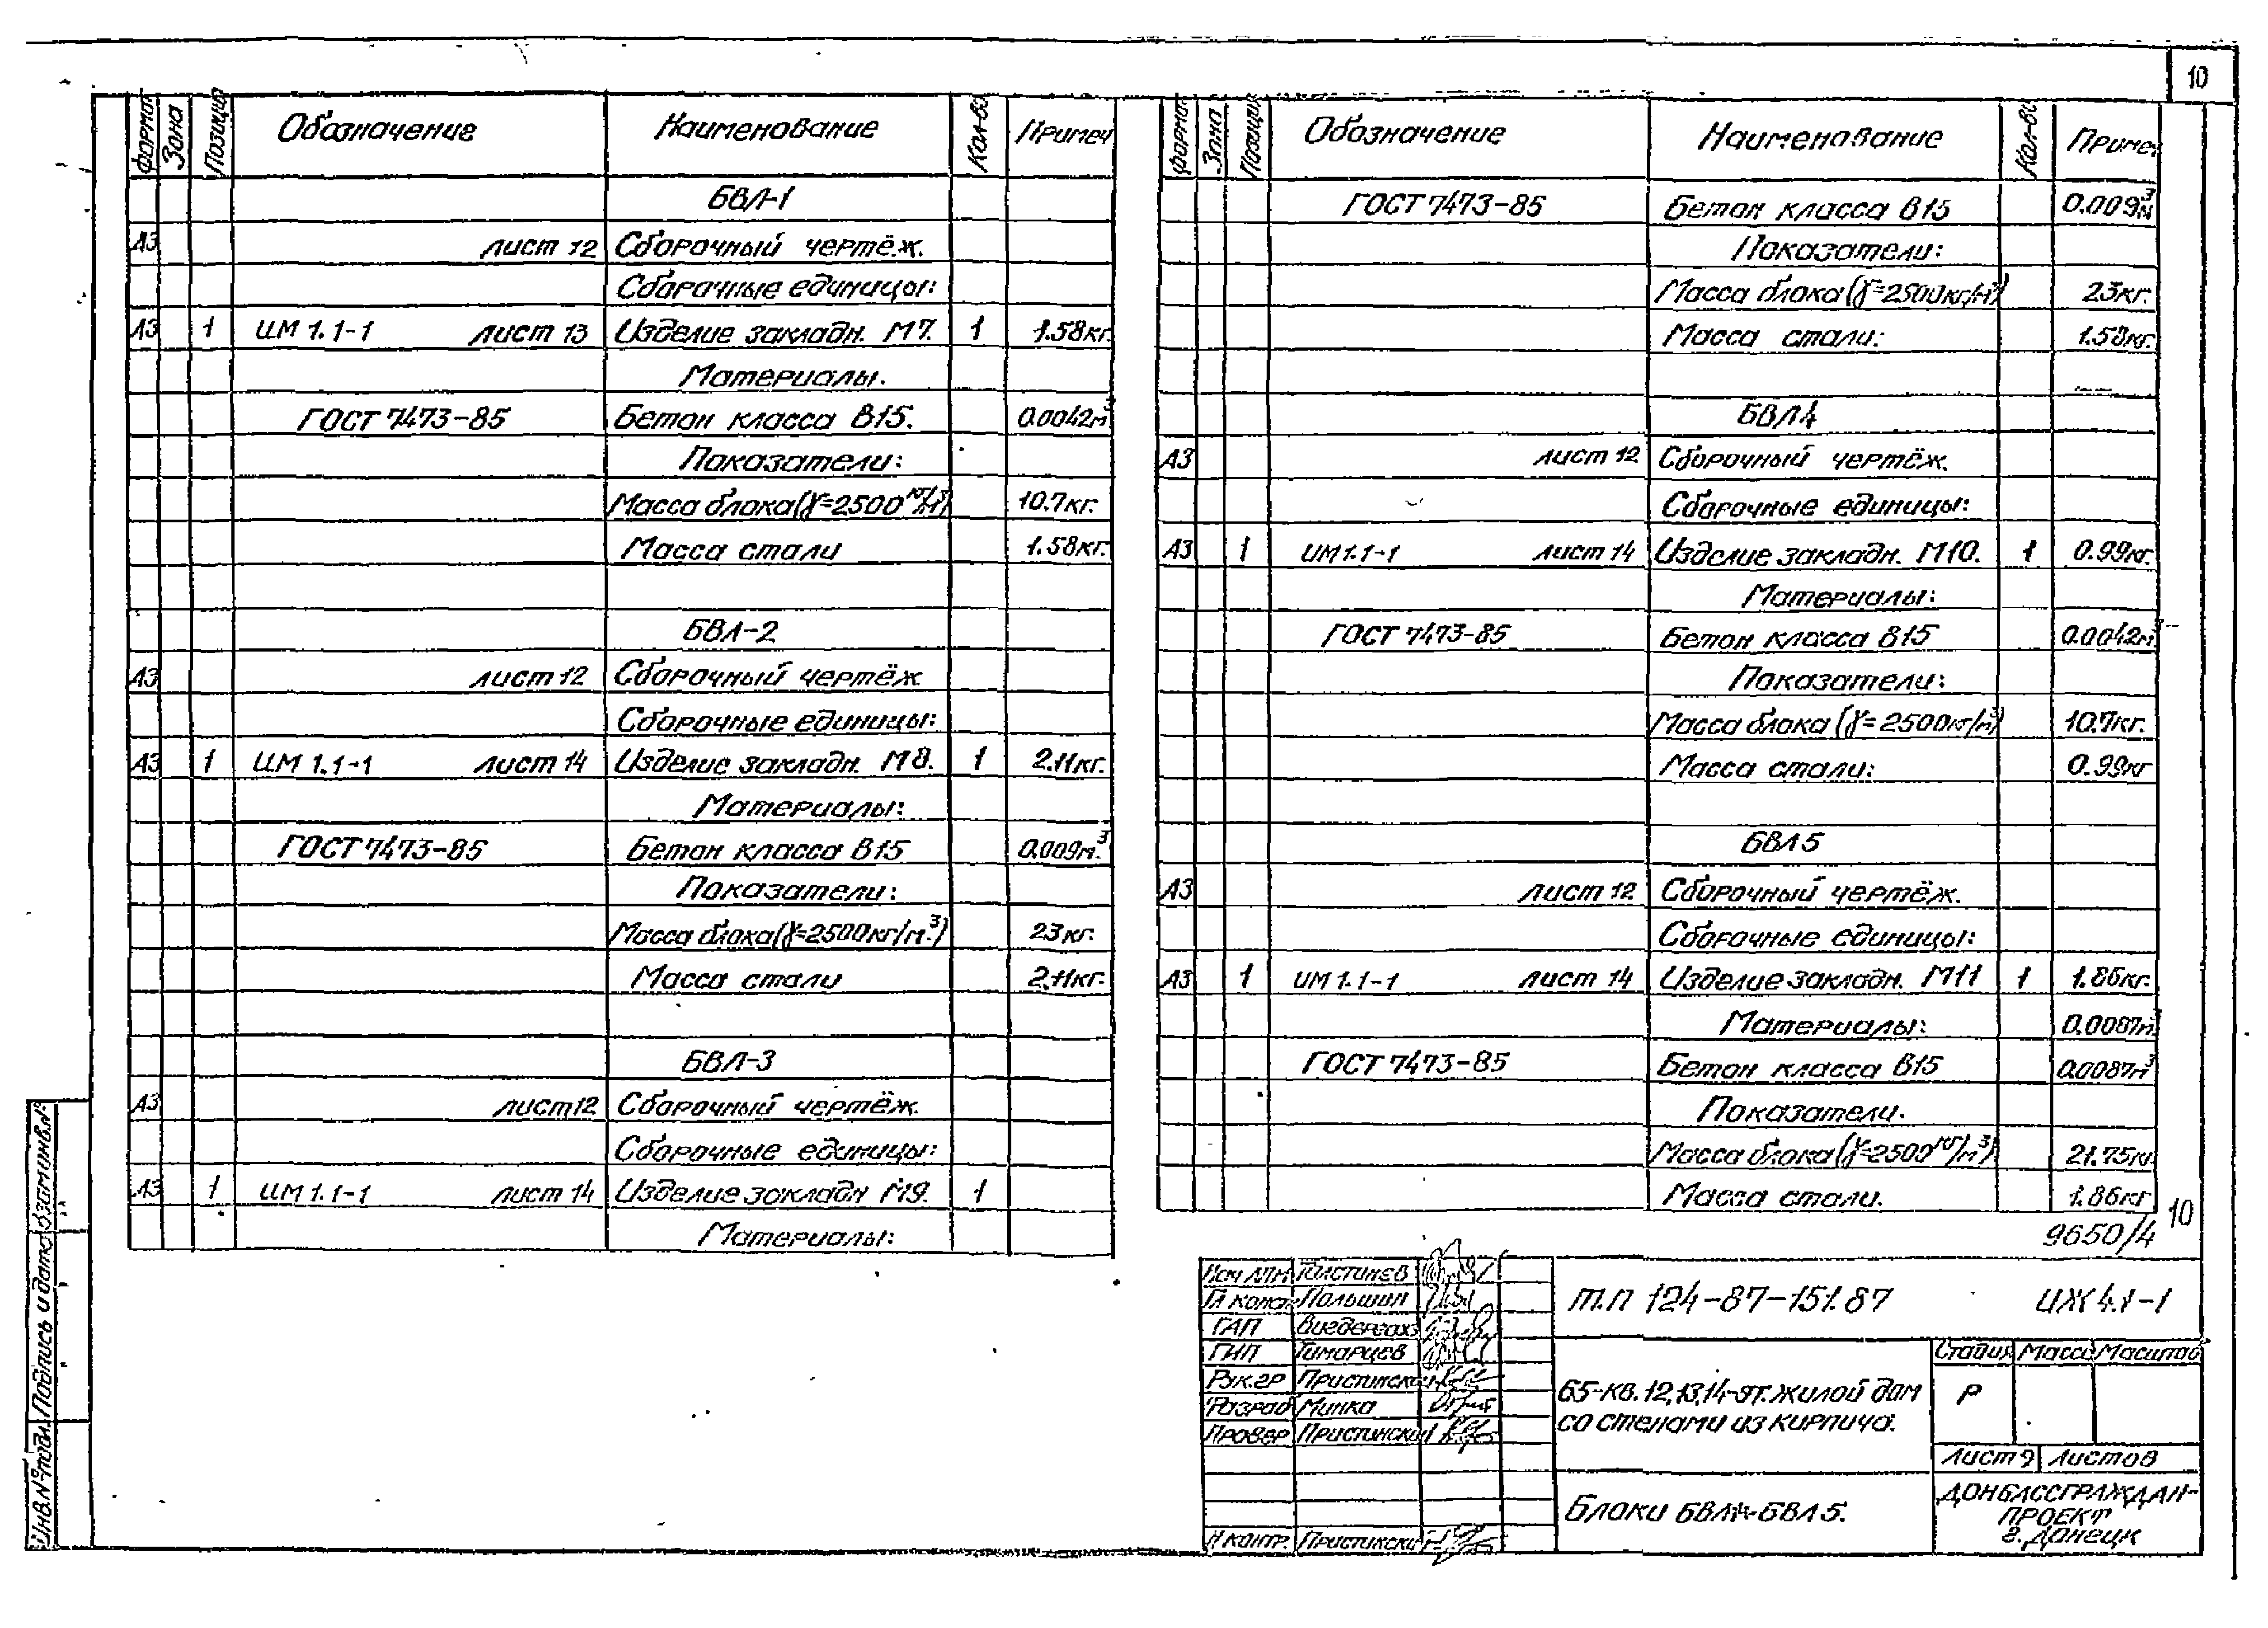 10
Формат Зона Позиция Обозначение Наименование Кол-во Примеч
БВЛ-1
А3 лист 12 Сборочный чертёж.
Сборочные единицы:
А3 1 ИМ 1.1-1 лист 13 Изделие закладн. М7. 1 1.58кг.
Материалы.
ГОСТ 7473-85 Бетон класса В15. 0.0042м³
Показатели:
Масса блока (γ=2500кг/м³) 10.7кг.
Масса стали 1.58кг.
БВЛ-2
А3 лист 12 Сборочный чертёж
Сборочные единицы:
А3 1 ИМ 1.1-1 лист 14 Изделие закладн. М8. 1 2.11кг.
Материалы:
ГОСТ 7473-85 Бетон класса В15 0.009м.³
Показатели:
Масса блока (γ=2500кг/м.³) 23кг.
Масса стали 2.11кг.
БВЛ-3
А3 лист 12 Сборочный чертёж.
Сборочные единицы:
А3 1 ИМ 1.1-1 лист 14 Изделие закладн М9. 1
Материалы:
Формат Зона Позиция Обозначение Наименование Кол-во Примеч
ГОСТ 7473-85 Бетон класса В15 0.009м³
Показатели:
Масса блока (γ=2500кг/м³) 23кг.
Масса стали: 1.58кг.
БВЛ4
А3 лист 12 Сборочный чертёж.
Сборочные единицы:
А3 1 ИМ 1.1-1 лист 14 Изделие закладн. М10. 1 0.99кг.
Материалы:
ГОСТ 7473-85 Бетон класса В15 0.0042м³
Показатели:
Масса блока (γ=2500кг/м³) 10.7кг.
Масса стали: 0.99кг
БВЛ5
А3 лист 12 Сборочный чертёж.
Сборочные единицы:
А3 1 ИМ 1.1-1 лист 14 Изделие закладн. М11 1 1.86кг.
Материалы: 0.0087м³
ГОСТ 7473-85 Бетон класса В15 0.0087м³
Показатели.
Масса блока (γ=2500кг/м³) 21.75кг.
Масса стали. 1.86кг
10
9650/4
Толстичев
Гл конст Польшин
ГАП
ГИП Тимарцев
Рук.гр Пристинская
Разраб Минка
Провер Пристинская
Н контр. Пристинская
т.п 124-87-151.87 ИЖ4.1-1
65-кв. 12,13,14-эт. жилой дом
со стенами из кирпича.
Стадия Масса Масштаб
Р
Лист 9 Листов
Блоки БВЛ1÷БВЛ5.
ДОНБАССГРАЖДАН-
ПРОЕКТ
г. Донецк
Инв.№подл. Подпись и дата Взам.инв.№